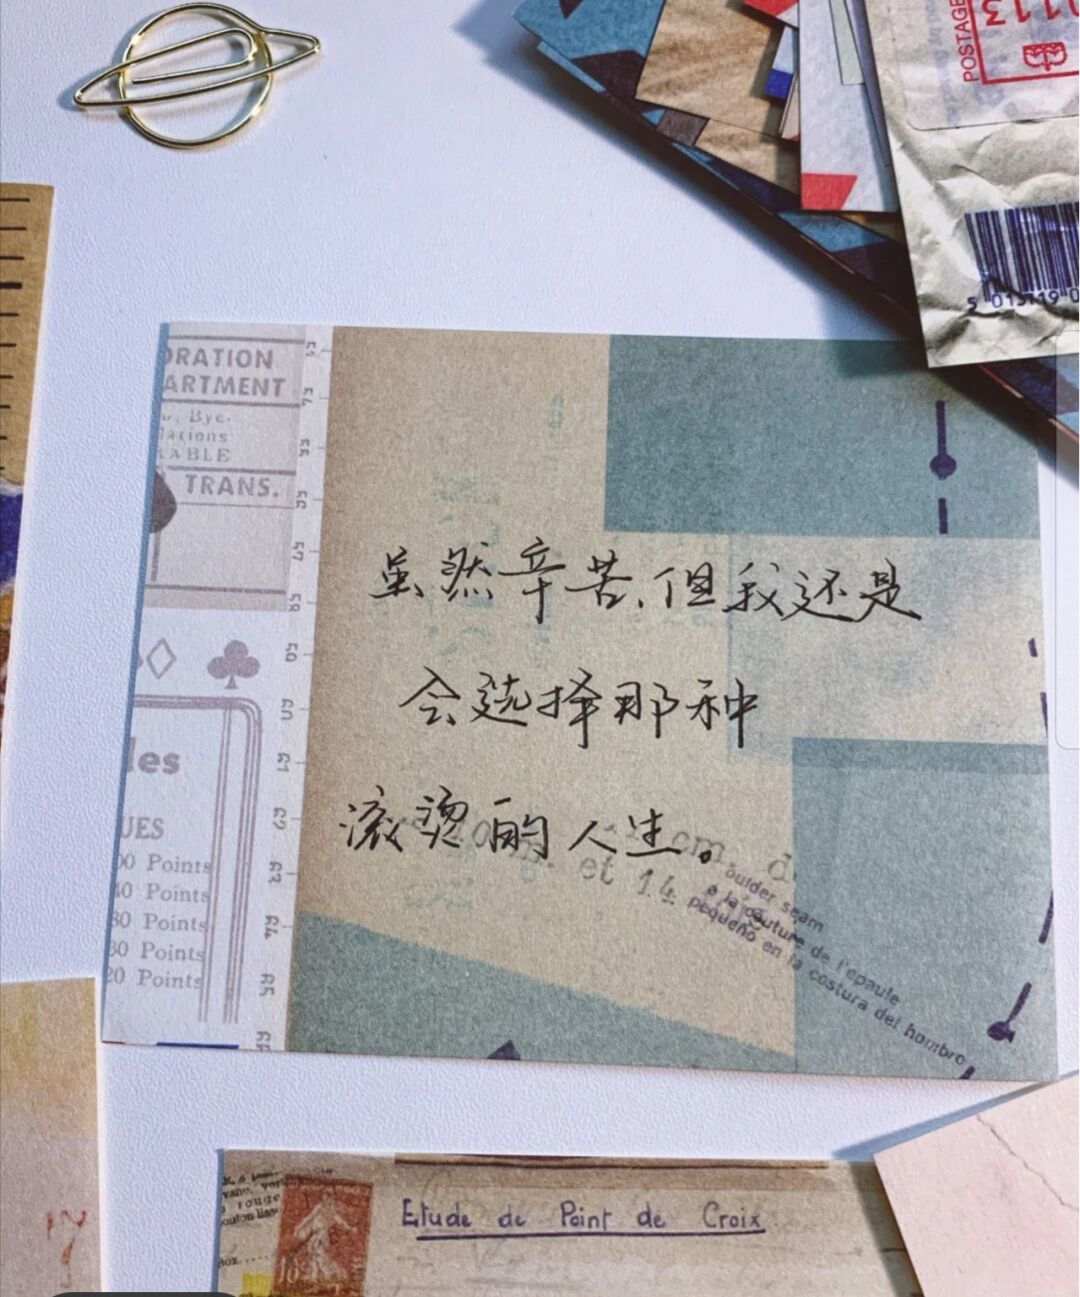 POSTAGE
113
5 013119 0
ORATION
ARTMENT
Bye-
lations
ABLE
TRANS.
虽然辛苦，但我还是
会选择那种
滚烫的人生。
cm. d
et 14
oulder seam
e la couture de l'epaule
pequeño en la costura del hombro
les
UES
00 Points
40 Points
80 Points
30 Points
20 Points
rouge
Etude de Point de Croix